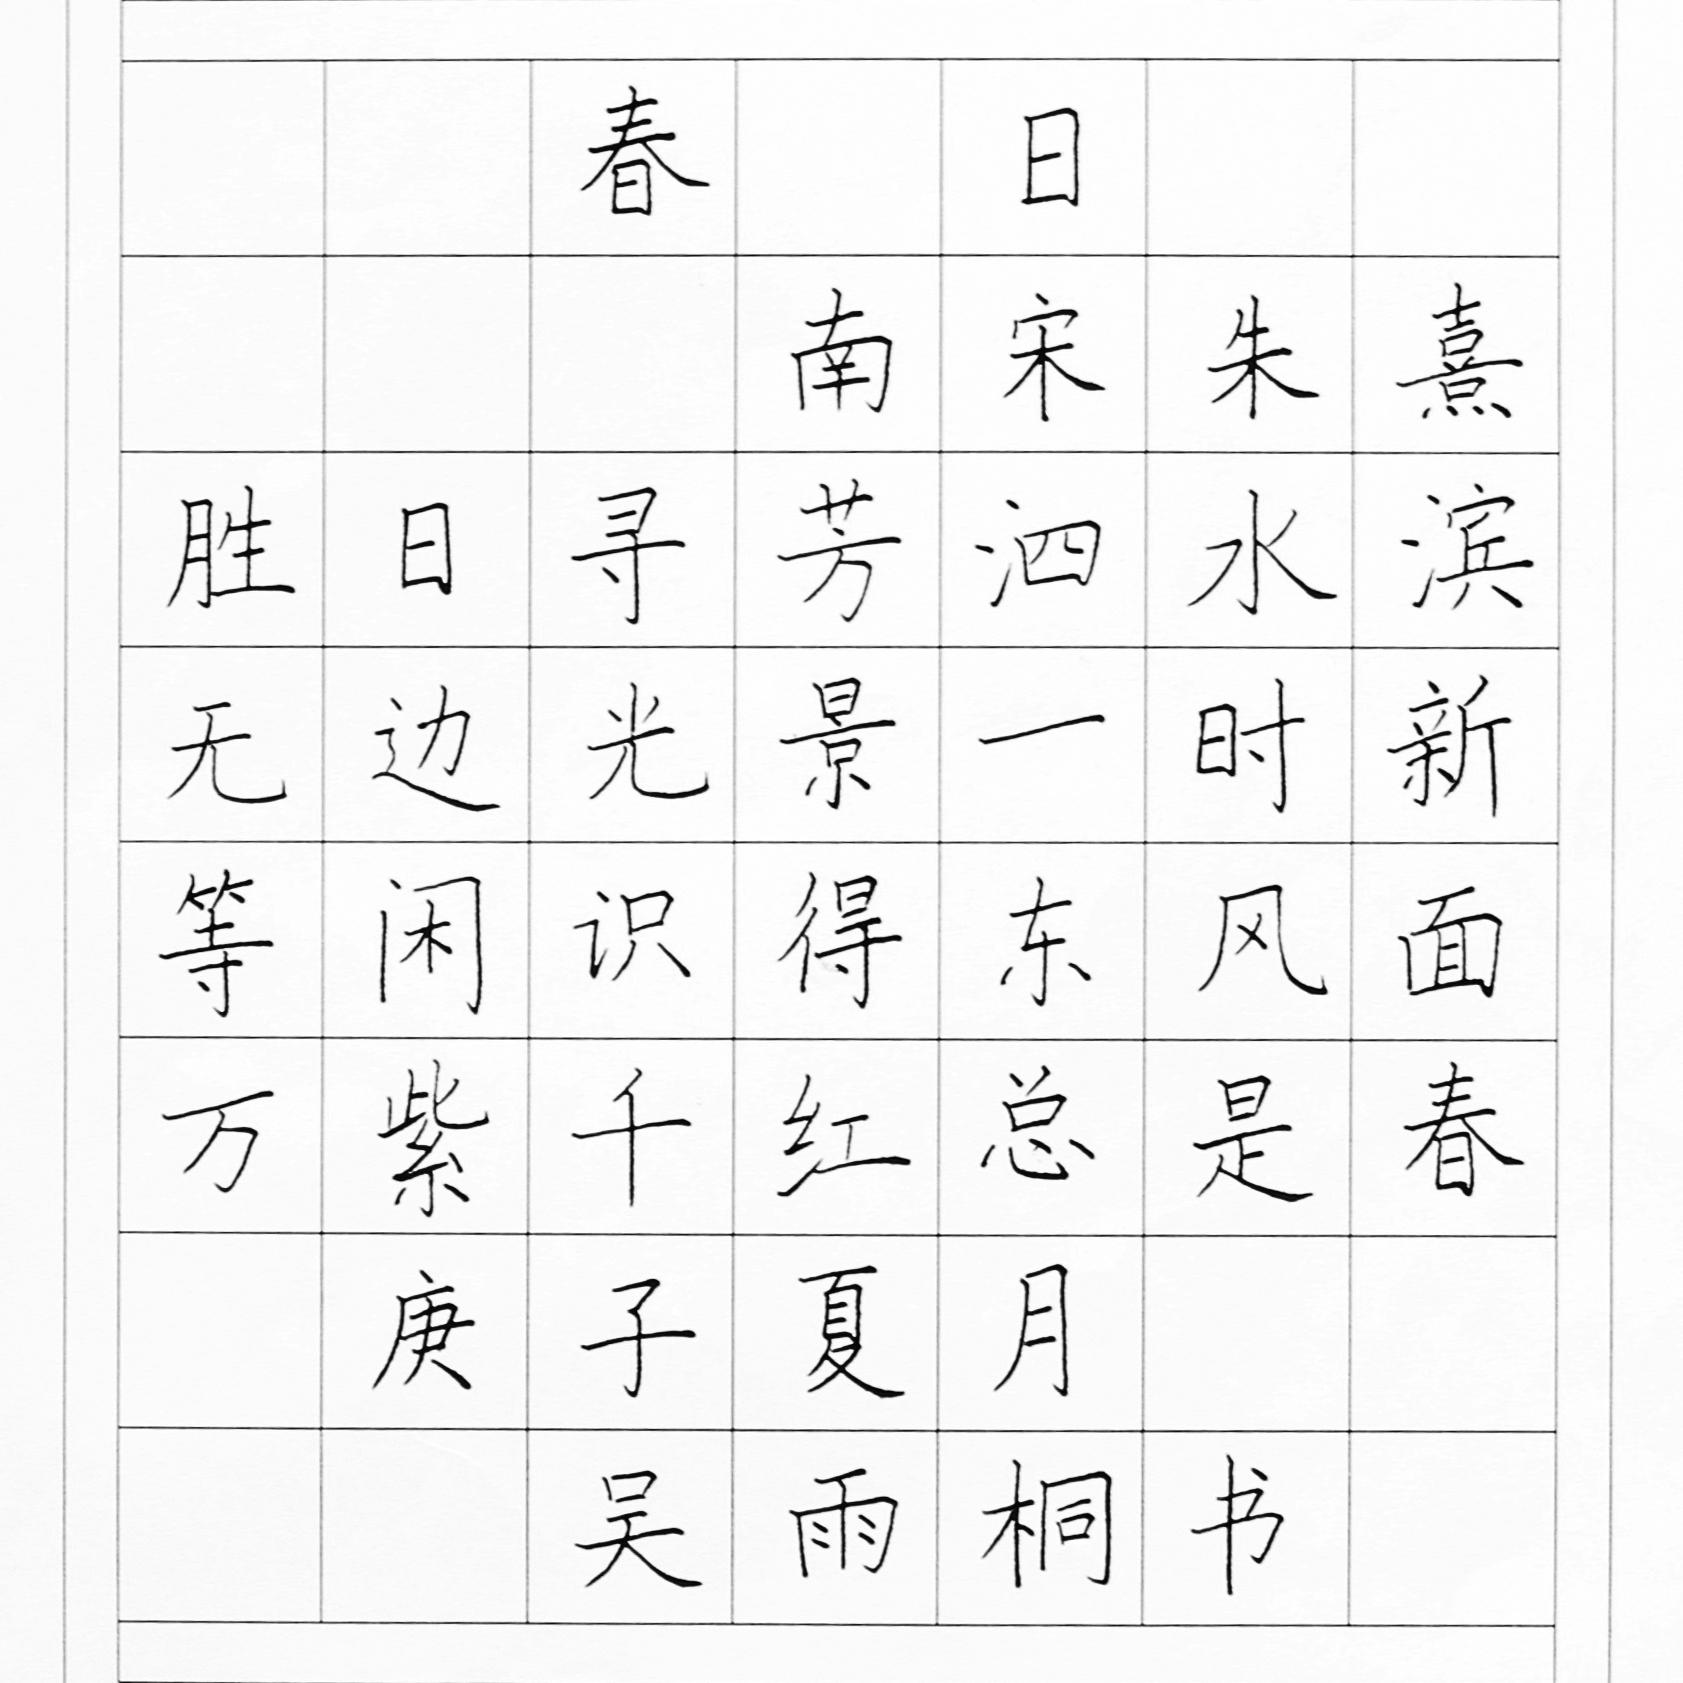 春日
南宋朱熹
胜日寻芳泗水滨
无边光景一时新
等闲识得东风面
万紫千红总是春
庚子夏月
吴雨桐书